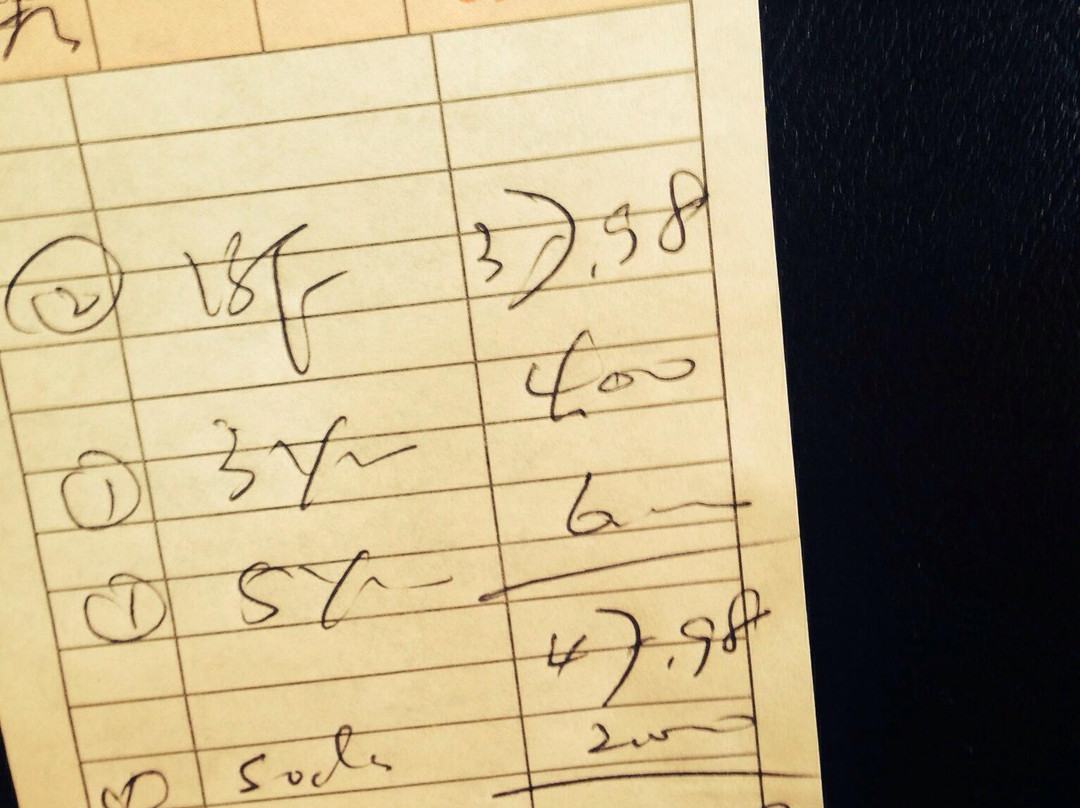 ② 37.98
① 3 Yr 4.00
① 5 Yr 6—
47.98
Soda 2.00